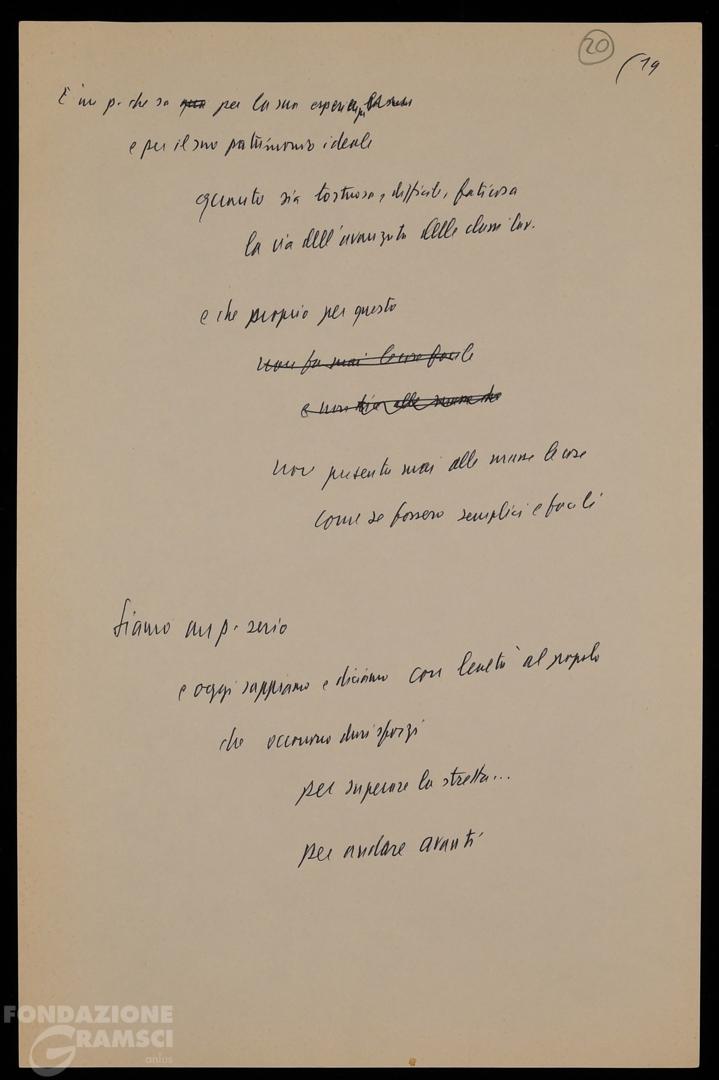 20
(19
È un p. che sa per la sua esperienza
e per il suo patrimonio ideale
quanto sia tortuosa, difficile, faticosa
la via dell'avanzata delle classi lav.
e che proprio per questo
non fa mai le cose facile
e non dia alle masse
non presenta mai alle masse le cose
come se fossero semplici e facili
Siamo un p. serio
e oggi sappiamo e diciamo con lealtà al popolo
che occorrono duri sforzi
per superare la stretta...
per andare avanti
FONDAZIONE
GRAMSCI
onlus